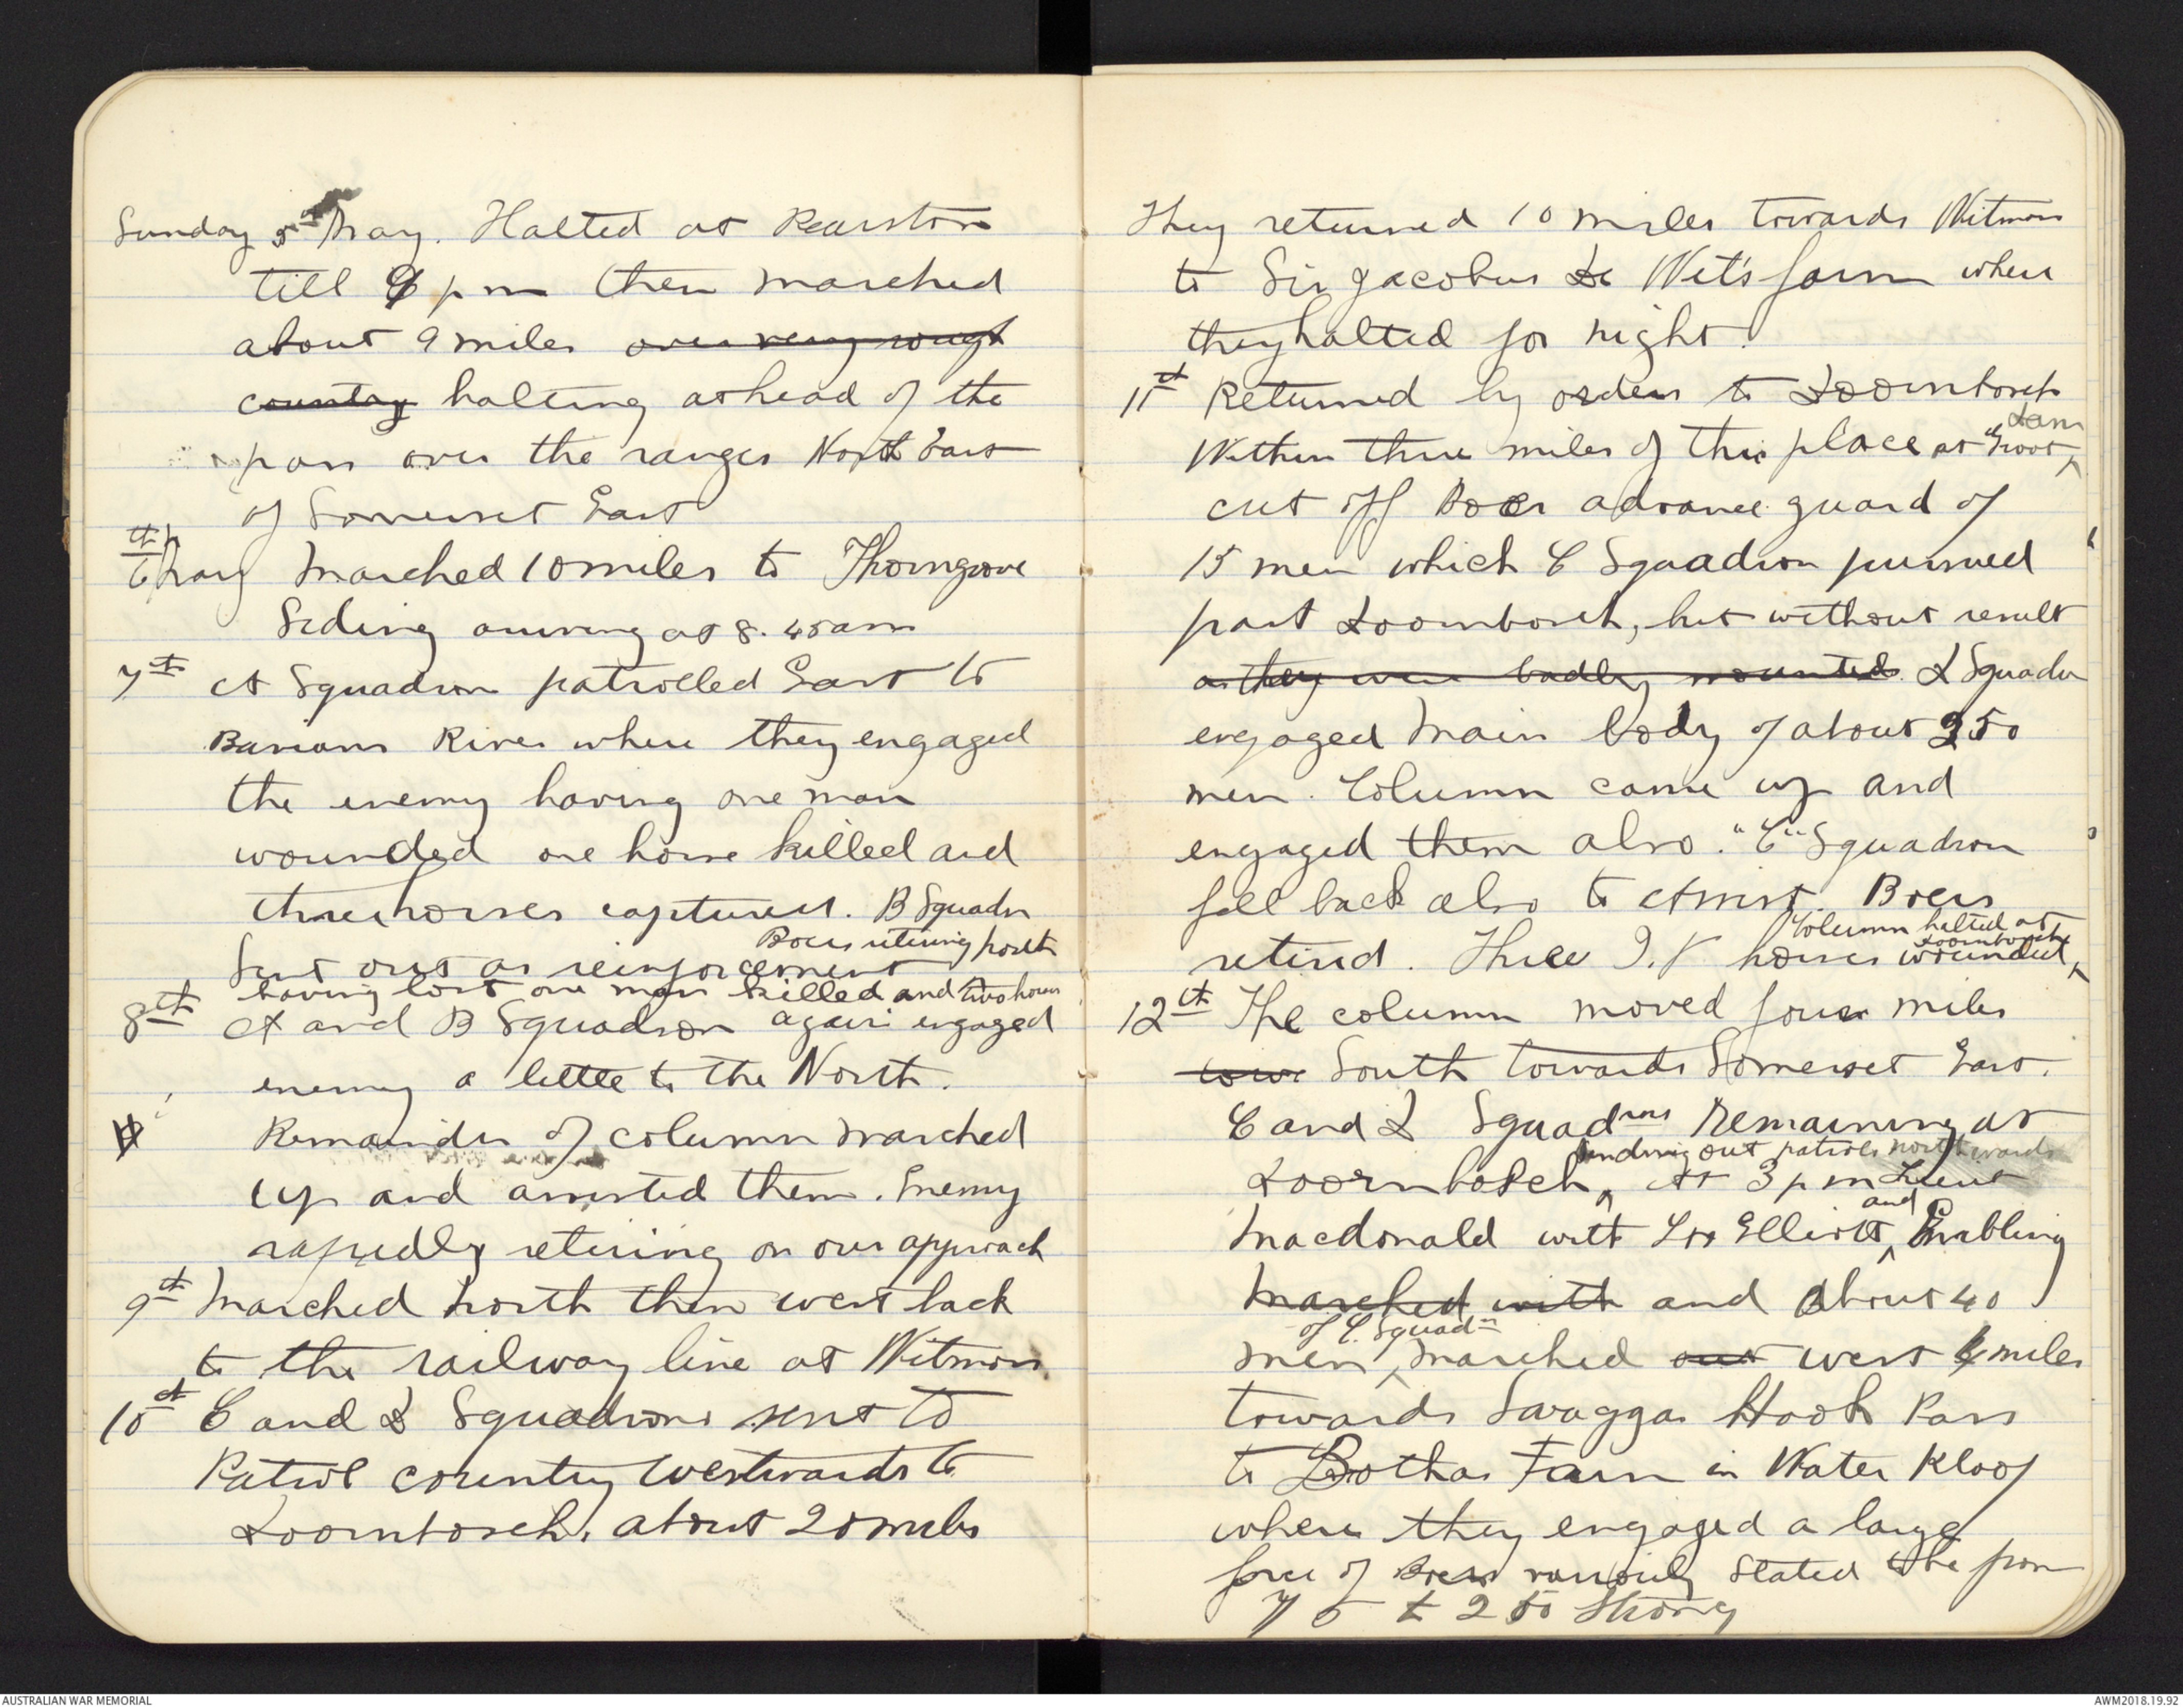 Sunday 5th May. Halted at Pearston
till 9 pm then marched
about 9 miles over very rough
country halting at head of the
pass over the ranges North East
of Somerset East
6th May Marched 10 miles to Thorngrove
Siding arriving at 8.45 am
7th A Squadron patrolled East to
Barians River where they engaged
the enemy having one man
wounded one horse killed and
three horses captured. B Squadn
sent out as reinforcement Boers retiring north
having lost one man killed and two horses
8th A and B Squadron again engaged
enemy a little to the North.
Remainder of column marched
up and assisted them. Enemy
rapidly retiring on our approach
9th Marched north then west back
to the railway line at Witmos.
10th C and D Squadrons sent to
Patrol country westwards to
Doornbosch, about 20 miles
They returned 10 miles towards Witmos
to Sir Jacobus De Wet's farm where
they halted for night.
11th Returned by orders to Doornbosch
Within three miles of this place at "Groot Dam
cut off Boer advance guard of
15 men which C Squadron pursued
past Doornbosch, but without result
as they were badly mounted. D Squadn
engaged main body of about 250
men. Column came up and
engaged them also. "C" Squadron
fell back also to Assist. Boers
retired. Three I.Y horses wounded, Column halted at Doornbosch
12th The column moved four miles
towa South towards Somerset East.
C and D Squadrons remaining at
Doornbosch, sending out patrols northwards At 3 pm Lieut
Macdonald with Lts Elliott and Bribling
marched with and About 40
men of C. Squadn marched out west 4 miles
towards Swagga Hook Pass
to Bothas Farm in Water Kloof
where they engaged a large
force of Boers variously stated to be from
75 to 250 strong
AUSTRALIAN WAR MEMORIAL
AWM2018.19.92